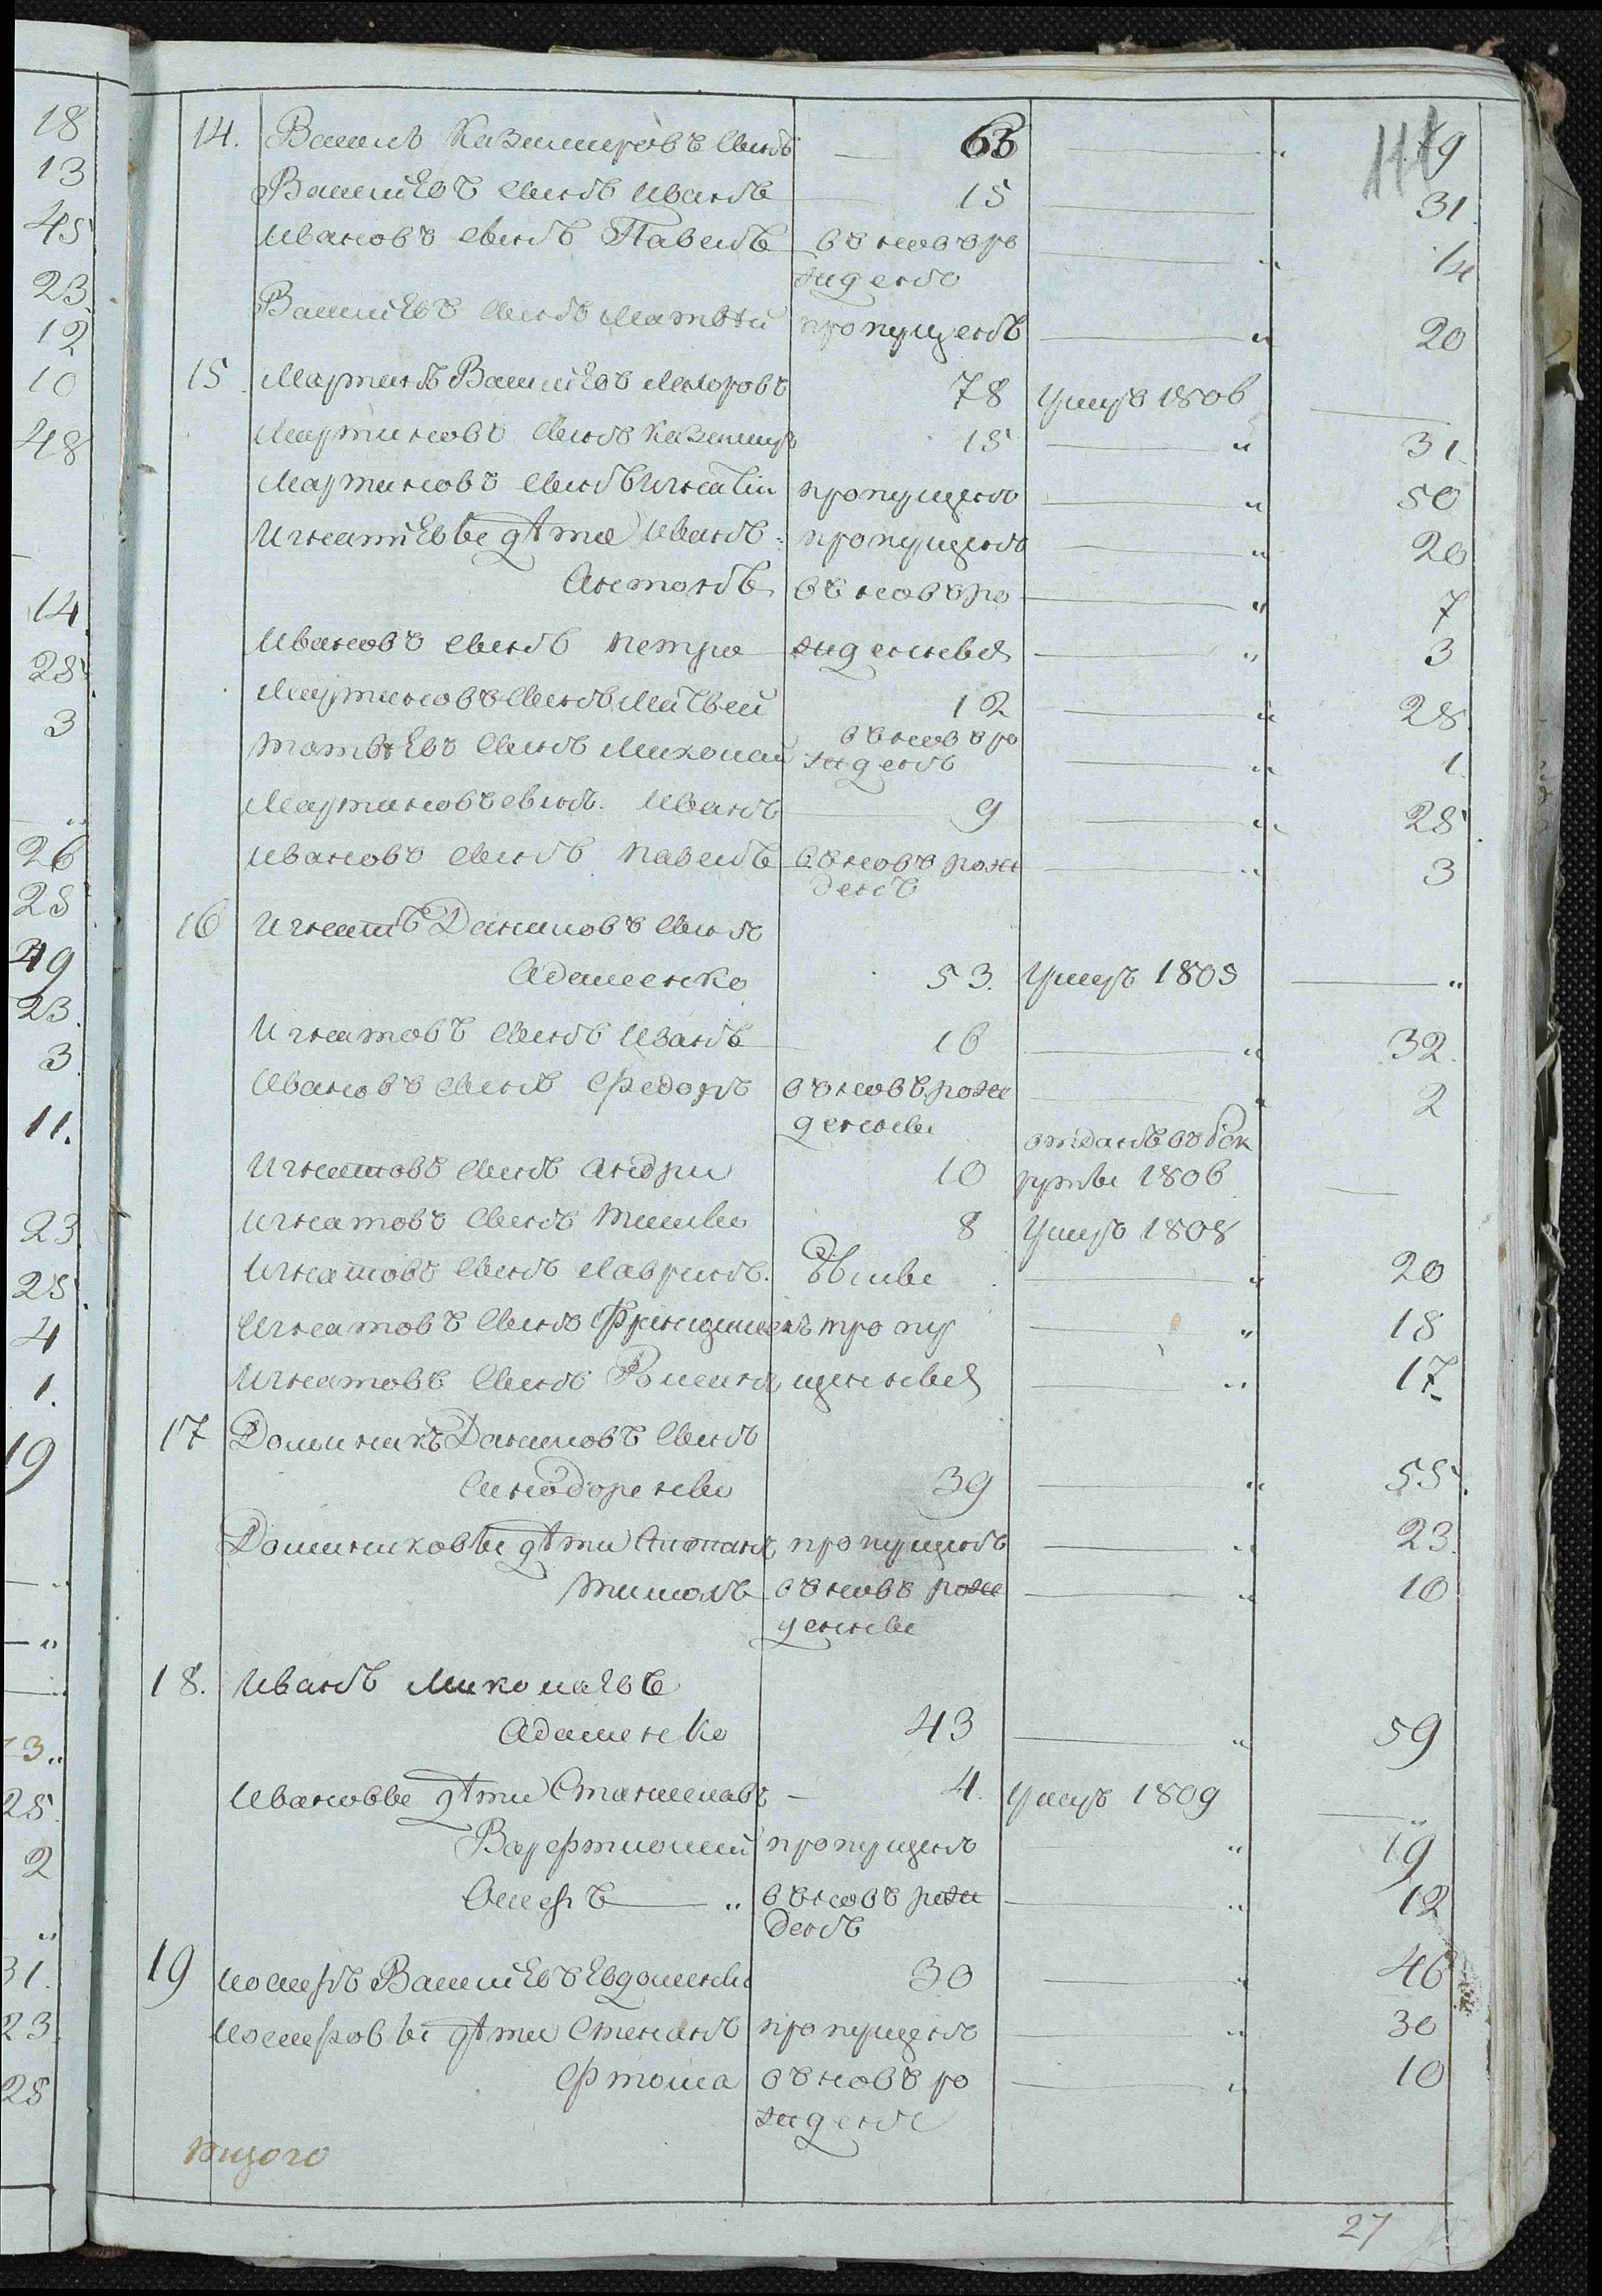 111
14. Василь Казимировъ сынъ 63 — " 79
Васильевъ сынъ Иванъ 15 — 31.
Ивановъ сынъ Павелъ въ новъ ро — " 14
жденъ
Васильевъ сынъ Матвѣй пропущенъ — " 20
15 Мартинъ Васильевъ 78 умеръ 1806 —
Мартиновъ сынъ Казимиръ 15 — " 31.
Мартиновъ сынъ Игнатій пропущенъ — " 50
Игнатіевы дѣти Иванъ пропущенъ — " 20
Антонъ въ новъ ро — " 7
Ивановъ сынъ Петра жденныя — " 3
Мартиновъ сынъ Матвей 12 — " 28.
въ новъ ро
Матвѣевъ сынъ Миколай жденъ — " 1.
Мартиновъ сынъ. Иванъ 9 — " 25.
Ивановъ сынъ Павелъ въ новъ рож — " 3
денъ
16 Игнатъ Даниловъ сынъ
Адаменко 53. умеръ 1805 — "
Игнатовъ сынъ Иванъ 16 — " 32.
Ивановъ сынъ Федоръ въ новъ рож — " 2
денны
отданъ въ рек
Игнатовъ сынъ Андри 10 руты 1806 —
Игнатовъ сынъ 8 умеръ 1808
Игнатовъ сынъ Лавринъ. — " 20
Игнатовъ сынъ Францишекъ пропу — " 18
Игнатовъ сынъ щенныя — " 17
17 Доминикъ Даниловъ сынъ
39 — " 55.
Доминиковы дѣти Антонъ пропущенъ — " 23.
въ новъ рож — " 10
денны
18. Иванъ Миколаевъ
Адаменко 43 — " 59
Ивановы дѣти Станиславъ — 4. умеръ 1809 — "
Варфтломей пропущенъ — " 19
Осифъ — " въ новъ рож — " 12
денъ
19 Іосифъ Васильевъ 30 — " 46
Іосифовы дѣти Степанъ пропущенъ — " 30
Фтома въ новъ ро — " 10
жденъ
27
18
13
45
23
12
10
48
14.
28.
3
"
26
25
49
23.
3.
11.
23.
25.
4
1.
19
— "
— "
— "
25.
2
"
31.
23.
28